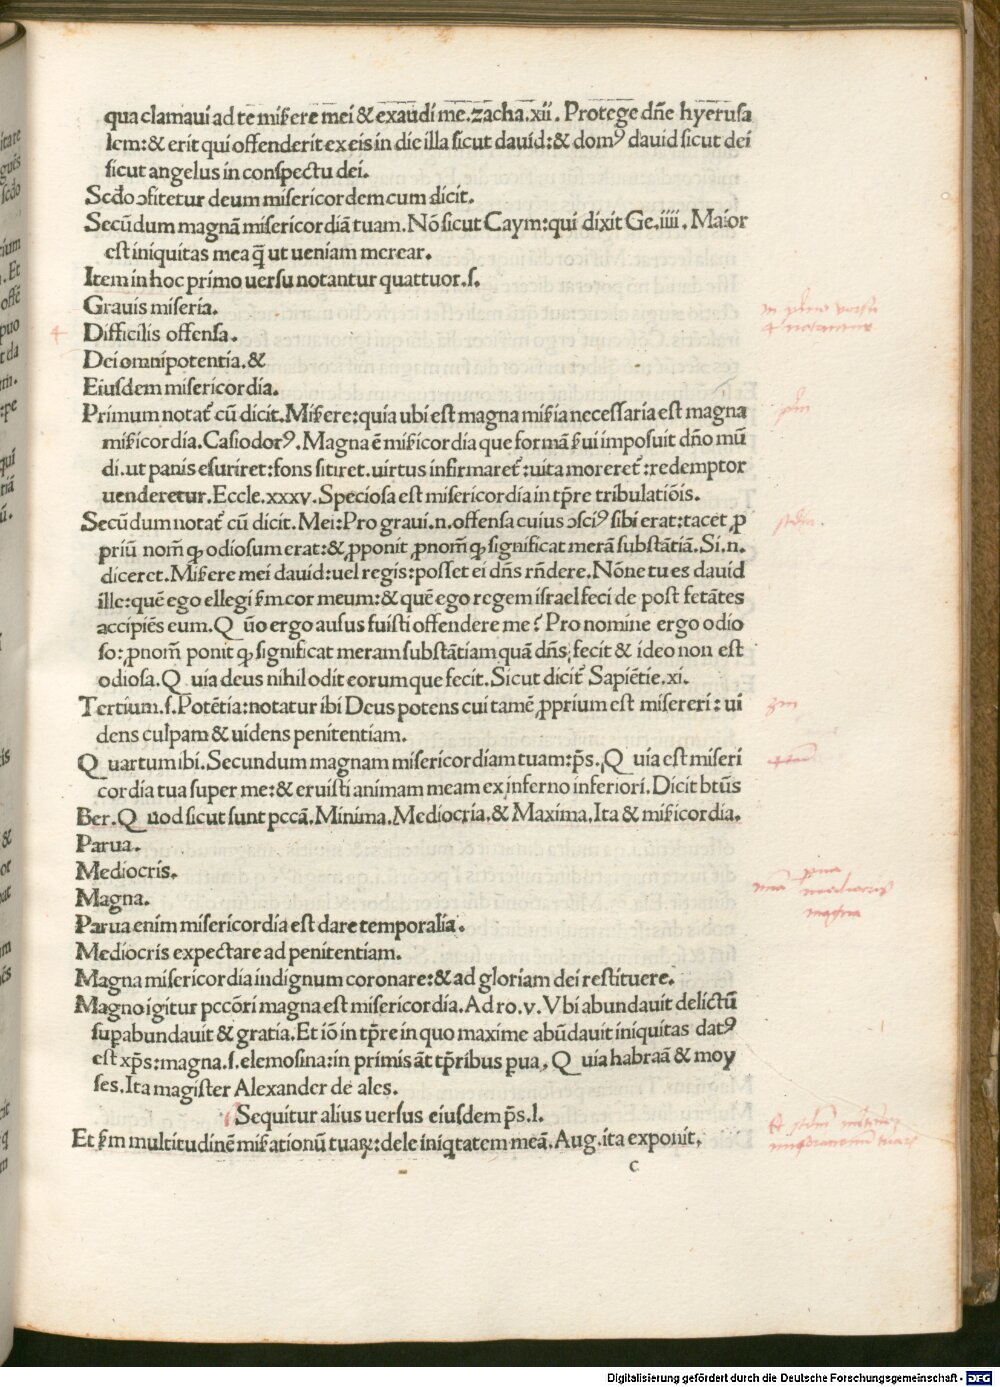 qua clamaui ad te mis̄ere mei & exaudi me. zacha. xii. Protege dn̄e hyerusa
lem: & erit qui offenderit ex eis in die illa sicut dauid: & domꝰ dauid sicut dei
sicut angelus in conspectu dei.
Scd̄o ↄfitetur deum misericordem cum dicit.
Secūdum magnā misericordiā tuam. Nō sicut Caym: qui dixit Ge. iiii. Maior
est iniquitas mea q̄ ut ueniam merear.
Item in hoc primo uersu notantur quattuor. s.
Grauis miseria.
4
Difficilis offensa.
Dei omnipotentia. &
Eiusdem misericordia.
Primum notat᷑ cū dicit. Mis̄ere: quia ubi est magna mis̄ia necessaria est magna
mis̄icordia. Casiodorꝰ. Magna ē mis̄icordia que formā s̄ui imposuit dn̄o mū
di. ut panis esuriret: fons sitiret. uirtus infirmaret᷑: uita moreret᷑: redemptor
uenderetur. Eccle. xxxv. Speciosa est misericordia in tp̄re tribulatiōis.
Secūdum notat᷑ cū dicit. Mei: Pro graui. n. offensa cuius ↄsciꝰ sibi erat: tacet ꝓ
priū nom̄ ꝙ odiosum erat: & ꝓponit ꝓnom̄ ꝙ significat merā substātiā. Si. n.
diceret. Mis̄ere mei dauid: uel regis: posset ei dn̄s rn̄dere. Nōne tu es dauid
ille: quē ego ellegi s̄m cor meum: & quē ego regem israel feci de post fetātes
accipiēs eum. Q ūo ergo ausus fuisti offendere me? Pro nomine ergo odio
so: ꝓnom̄ ponit ꝙ significat meram substātiam quā dn̄s fecit & ideo non est
odiosa. Q uia deus nihil odit eorum que fecit. Sicut dicit᷑ Sapiētie. xi.
Tertium. s. Potētia: notatur ibi Deus potens cui tamē ꝓprium est misereri: ui
dens culpam & uidens penitentiam.
Q uartum ibi. Secundum magnam misericordiam tuam: ps̄. Q uia est miseri
cordia tua super me: & eruisti animam meam ex inferno inferiori. Dicit btūs
Ber. Q uod sicut sunt pccā. Minima. Mediocria. & Maxima. Ita & mis̄icordia.
Parua.
Mediocris.
Magna.
Parua enim misericordia est dare temporalia.
Mediocris expectare ad penitentiam.
Magna misericordia indignum coronare: & ad gloriam dei restituere.
Magno igitur pccōri magna est misericordia. Ad ro. v. Vbi abundauit delictū
suꝑabundauit & gratia. Et iō in tp̄re in quo maxime abūdauit iniquitas datꝰ
est xp̄s: magna. s. elemosina: in primis āt tp̄ribus ꝑua. Q uia habraā & moy
ses. Ita magister Alexander de ales.
Sequitur alius uersus eiusdem ps̄. l.
Et s̄m multitudinē mis̄ationū tuaꝝ: dele iniqtatem meā. Aug. ita exponit.
c
parua
mediocris
magna
Digitalisierung gefördert durch die Deutsche Forschungsgemeinschaft - DFG